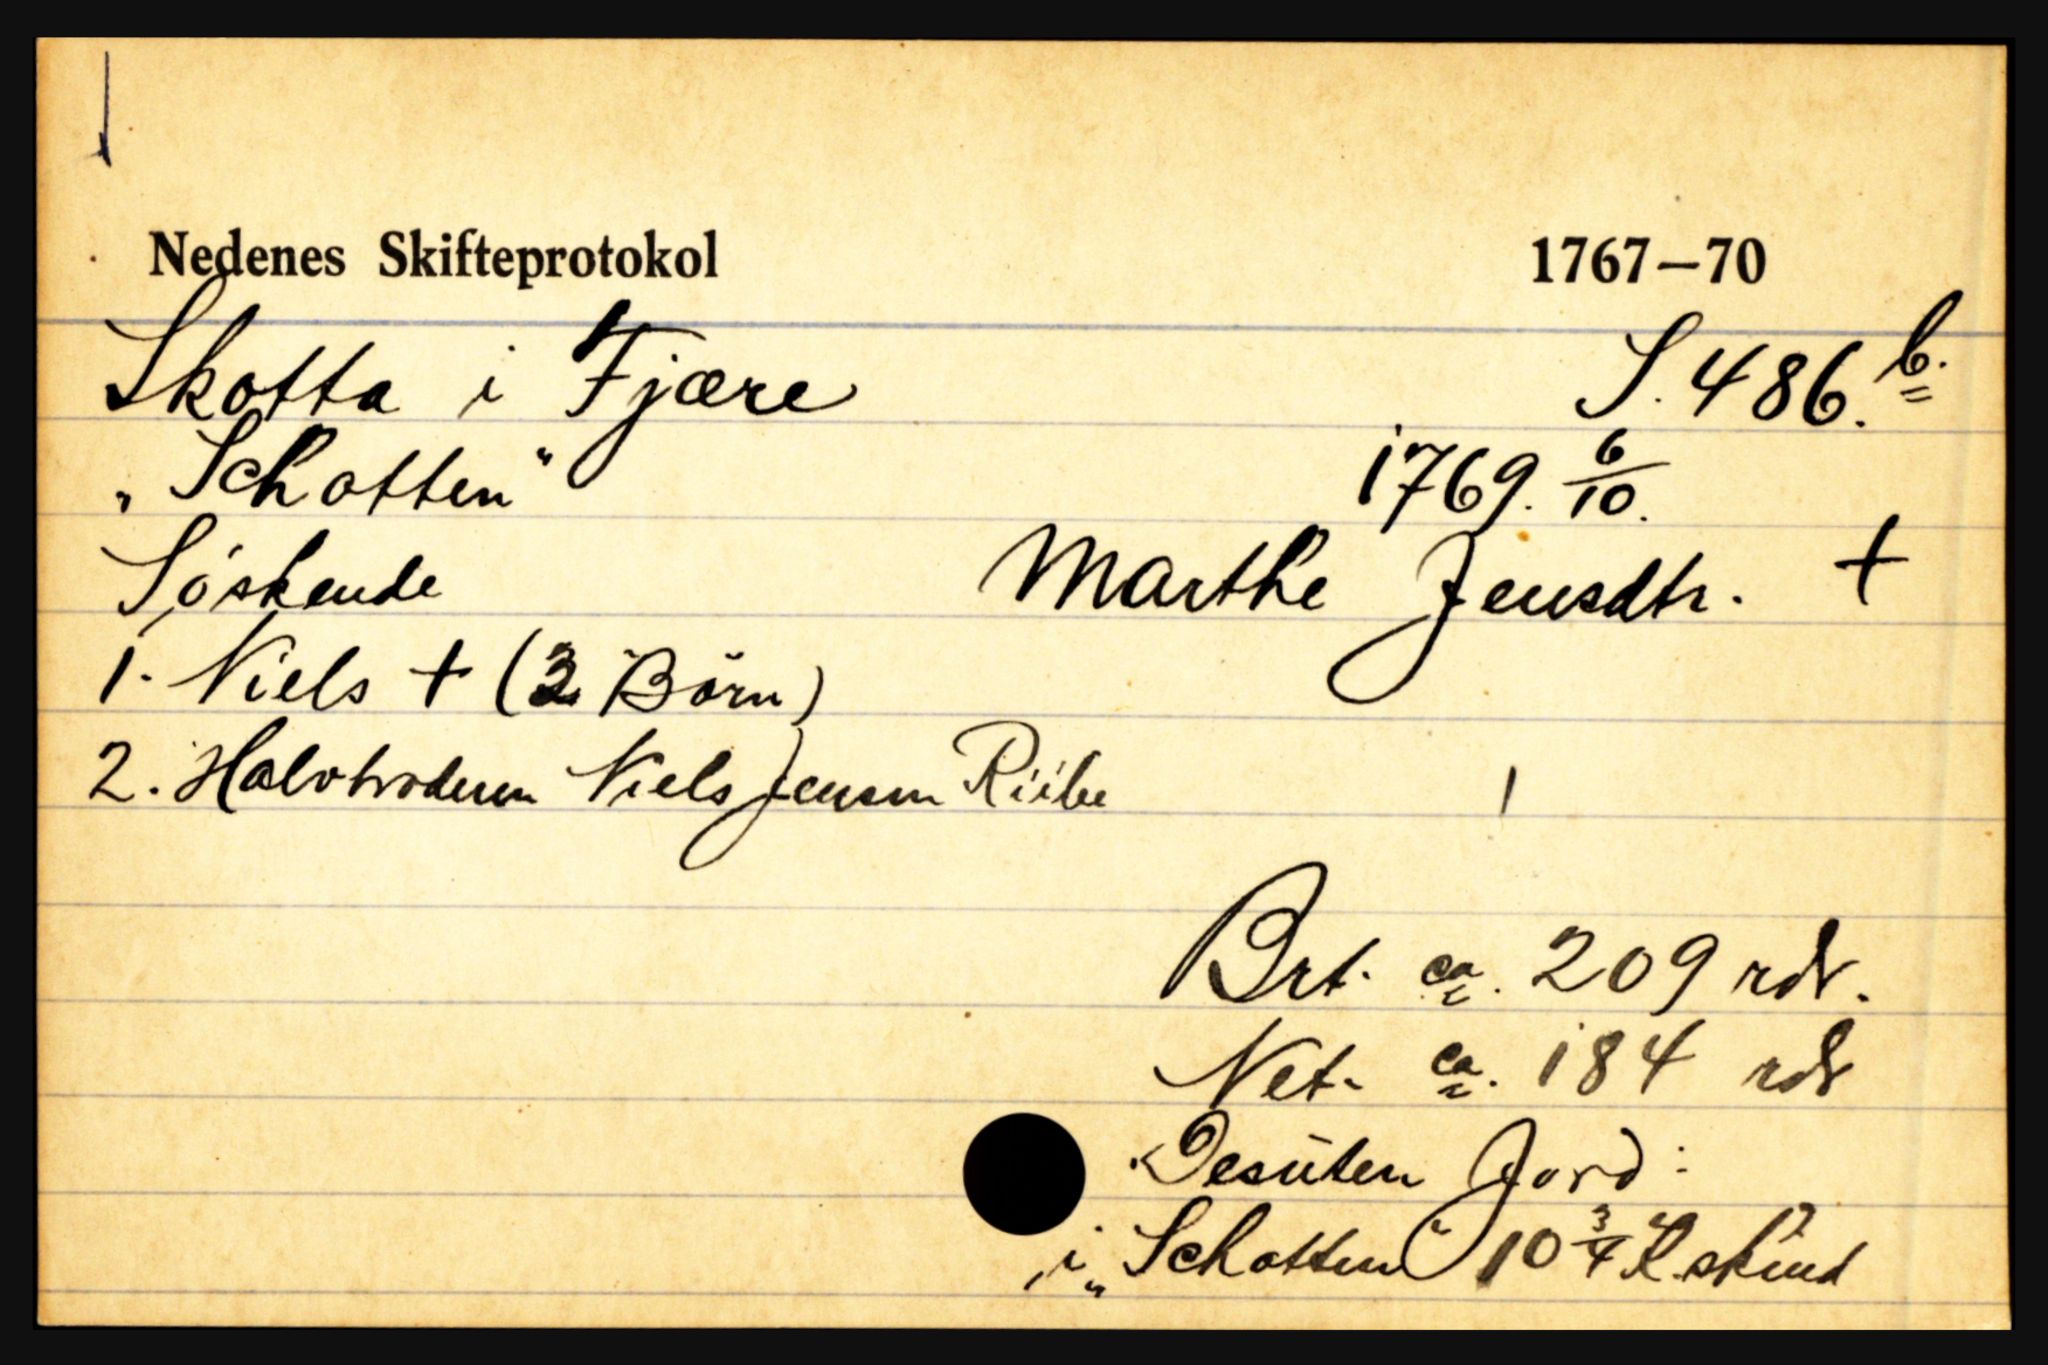 Nedenes Skifteprotokol 1767–70
Skotta i Fjære S. 486. b.
„Schotten“ 1769. 6/10.
Söskende Marthe Jensdtr. +
1. Niels + (3 Börn)
2. Halvbroderen Niels Jensen Riibe
Brt. ca. 209 rdr.
Net. ca. 184 rdr
Desuten Jord:
i „Schotten“ 10 3/4 K.skind